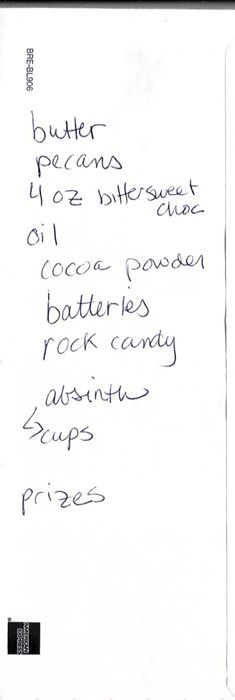 BRE-BL906
butter
pecans
4 oz bittersweet
choc
oil
cocoa powder
batteries
rock candy
absinth
↳ cups
prizes
AMERICAN
EXPRESS